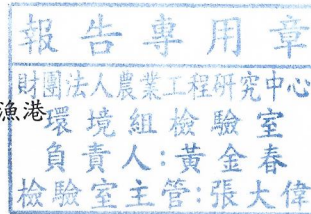 報告專用章
財團法人農業工程研究中心
漁港
環境組檢驗室
負責人:黃金春
檢驗室主管:張大偉